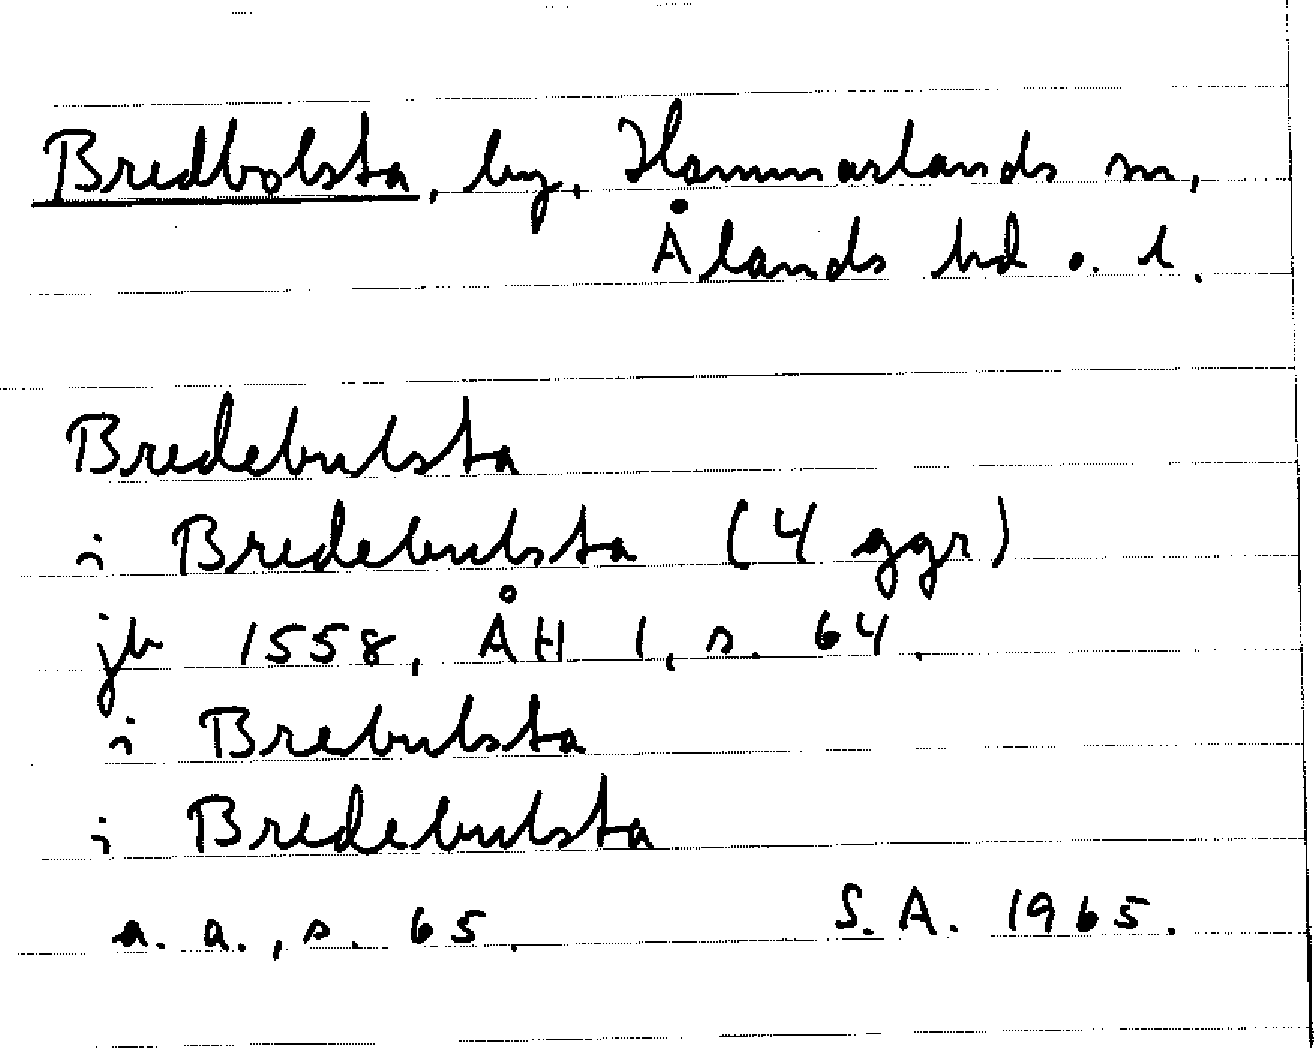 Bredbolsta, by, Hammarlands sn,
Ålands hd o. l.
Bredebulsta
i Bredebulsta (4 ggr)
jb 1558, ÅH 1, s. 64.
i Brebulsta
i Bredebulsta
a. a., s. 65.
S. A. 1965.